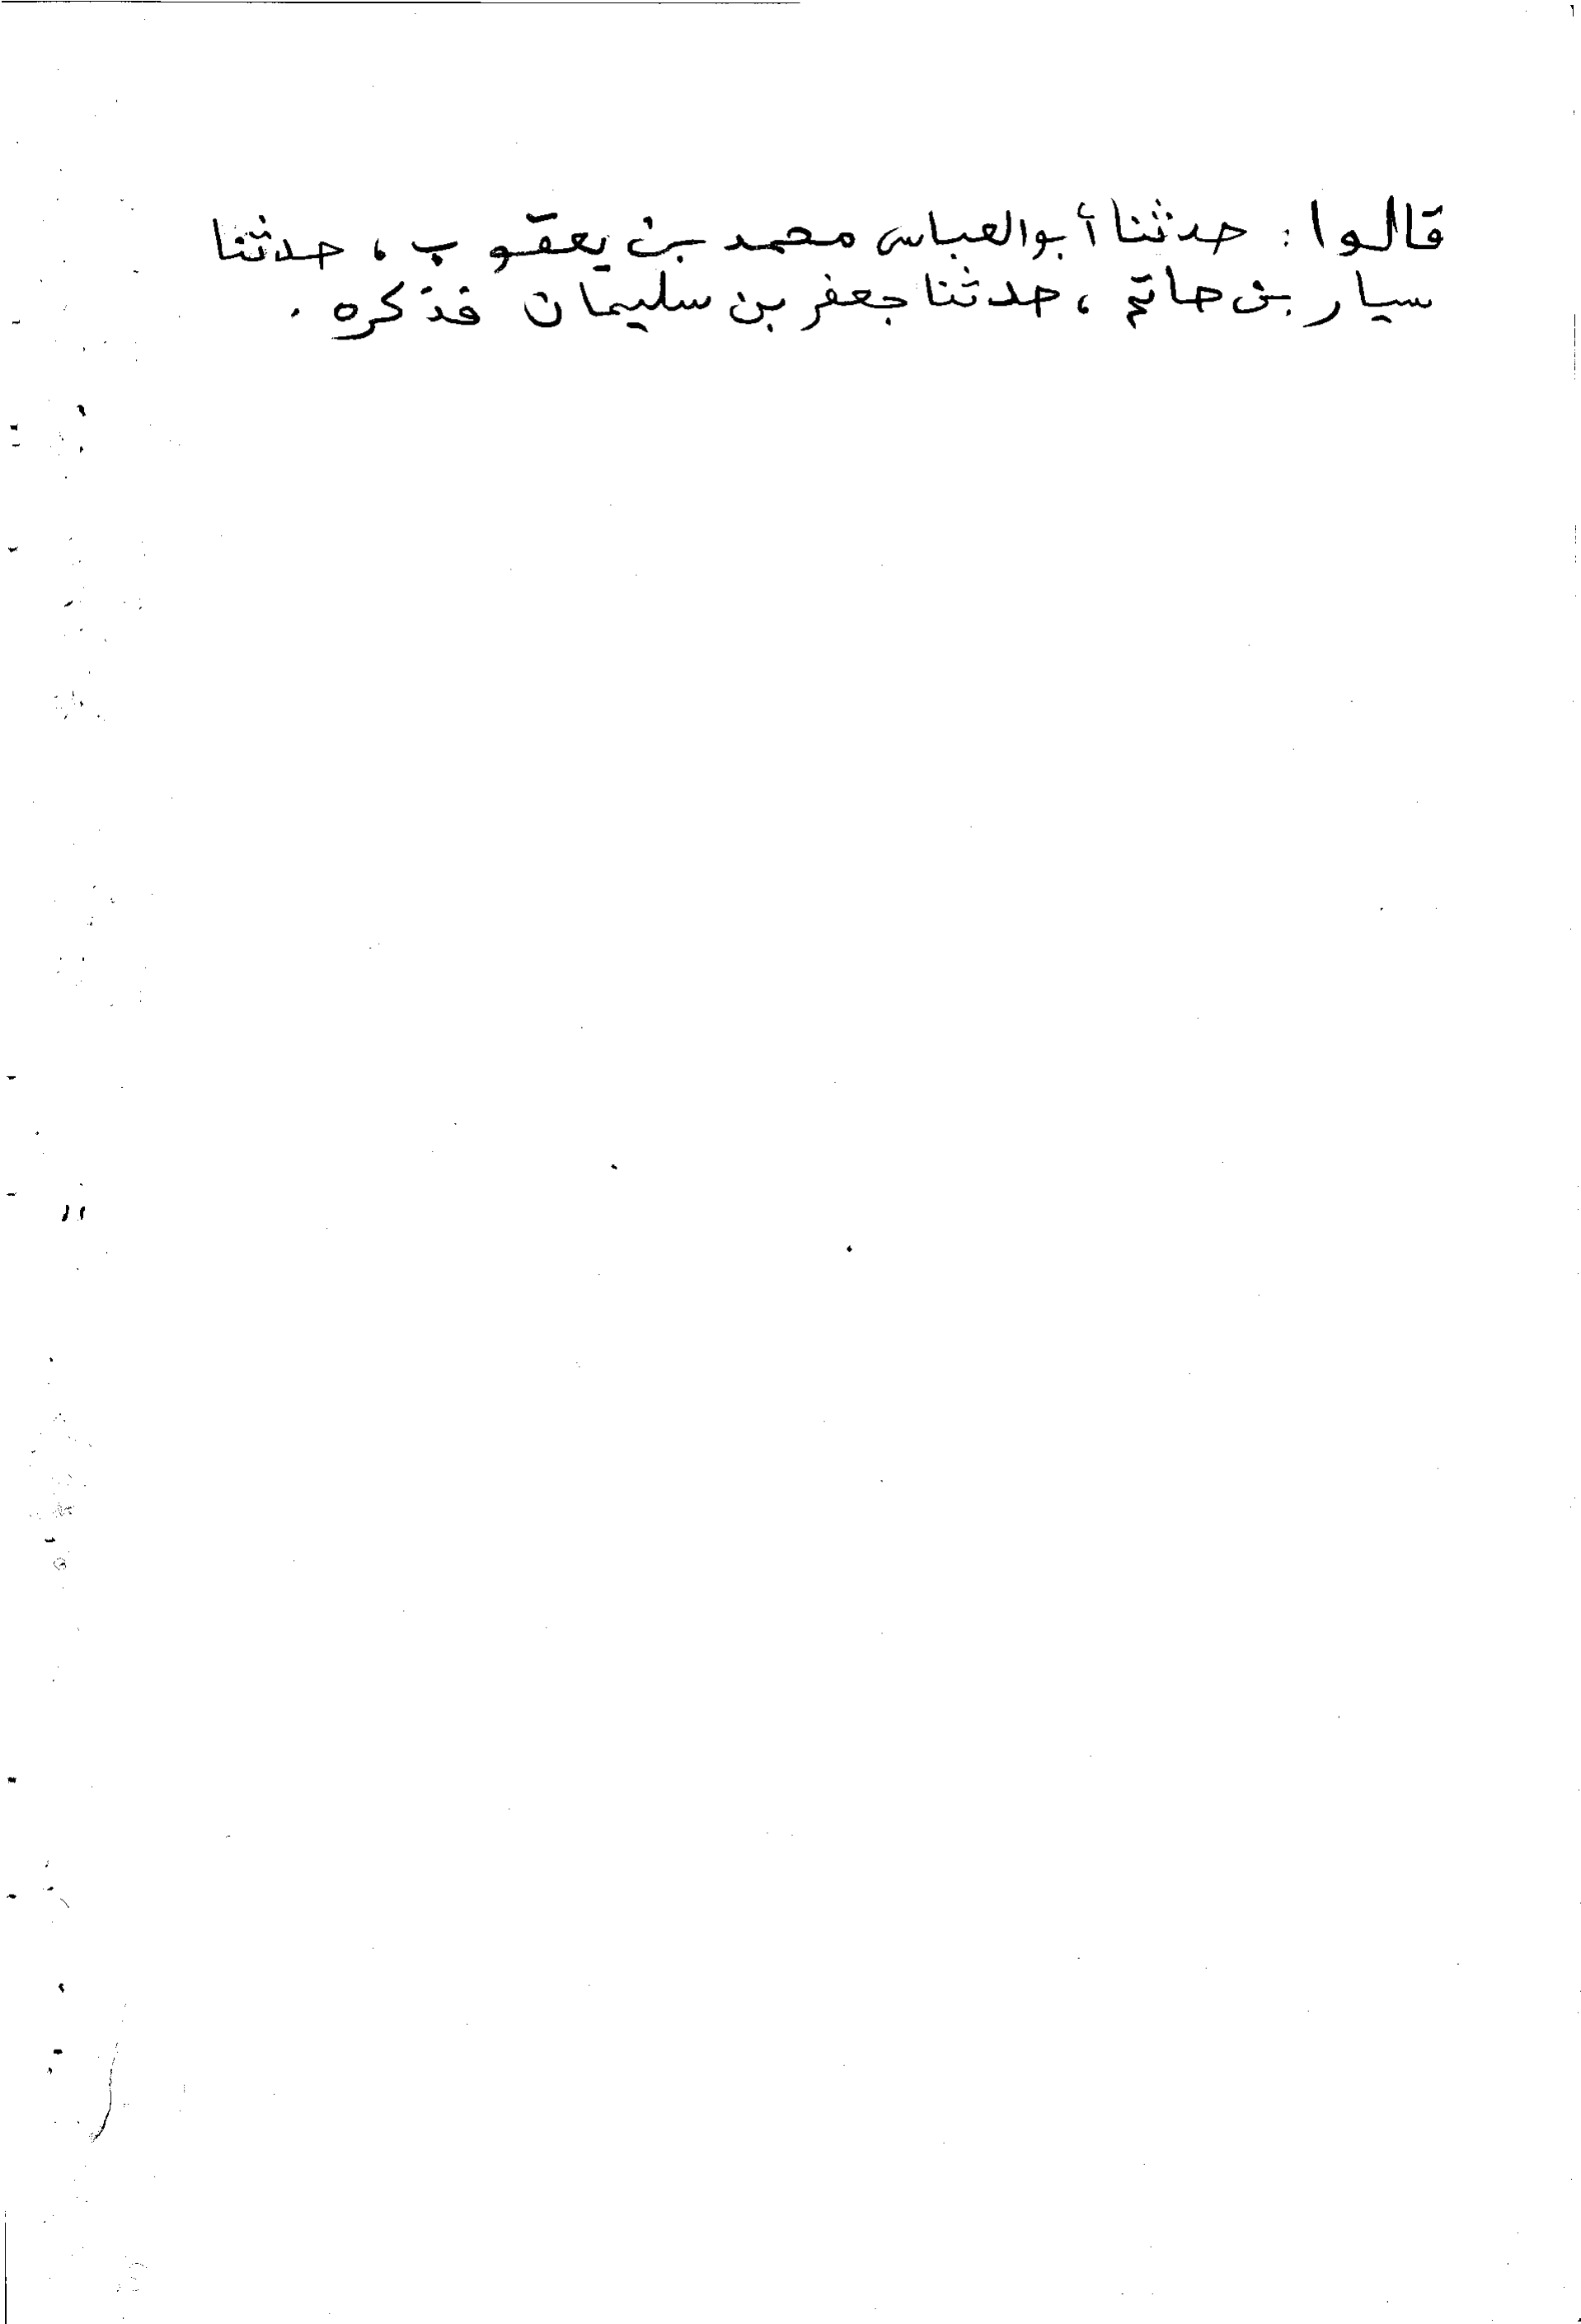 قالوا: حدثنا أبوالعباس محمد بن يعقوب، حدثنا
سيار بن حاتم، حدثنا جعفر بن سليمان فذكره.